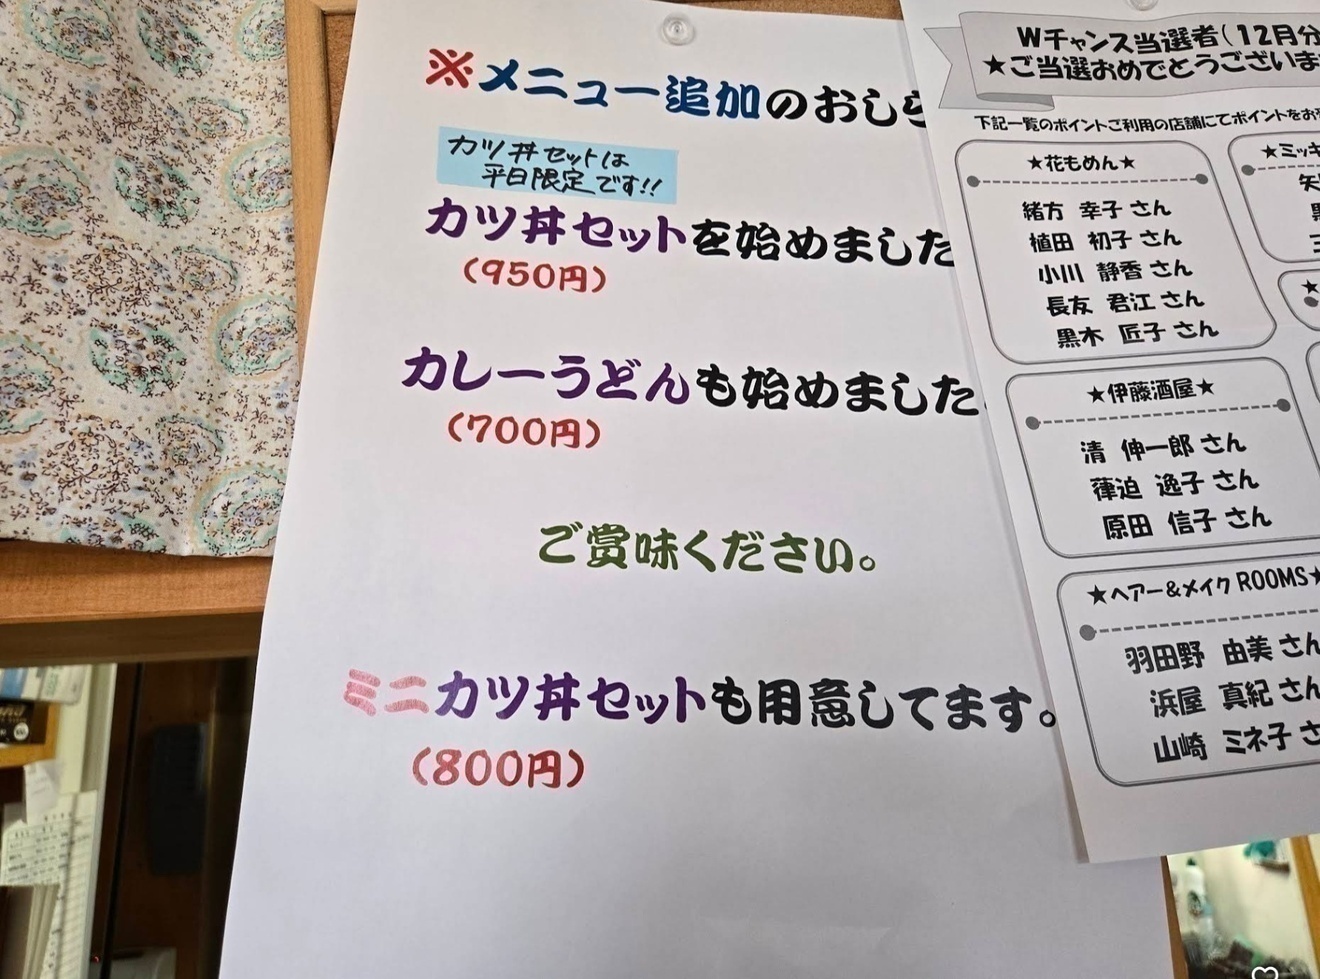 ※メニュー追加のおしら
カツ丼セットは
平日限定です!!
カツ丼セットを始めました
(950円)
カレーうどんも始めました
(700円)
ご賞味ください。
ミニカツ丼セットも用意してます。
(800円)
Wチャンス当選者(12月分
★ご当選おめでとうございま
下記一覧のポイントご利用の店舗にてポイントをお
★花もめん★
緒方 幸子さん
植田 初子さん
小川 静香さん
長友 君江さん
黒木 匠子さん
★ミッキ
★伊藤酒屋★
清 伸一郎さん
迫 逸子さん
原田 信子さん
★ヘアー&メイク ROOMS★
羽田野 由美さん
浜屋 真紀さん
山崎 ミネ子さ